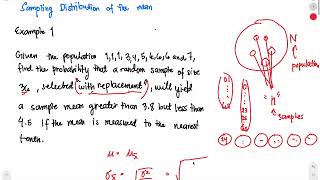 Sampling Distribution of the mean
Example 1
Given the population 1, 1, 1, 3, 4, 5, 6, 6, 6 and 7,
find the probability that a random sample of size
36, selected (with replacement), will yield
a sample mean greater than 3.8 but less than
4.5 if the mean is measured to the nearest
tenth.
μ = μx̄
σx̄ = √σ²
= √
N
population
"n"
samples
01
01